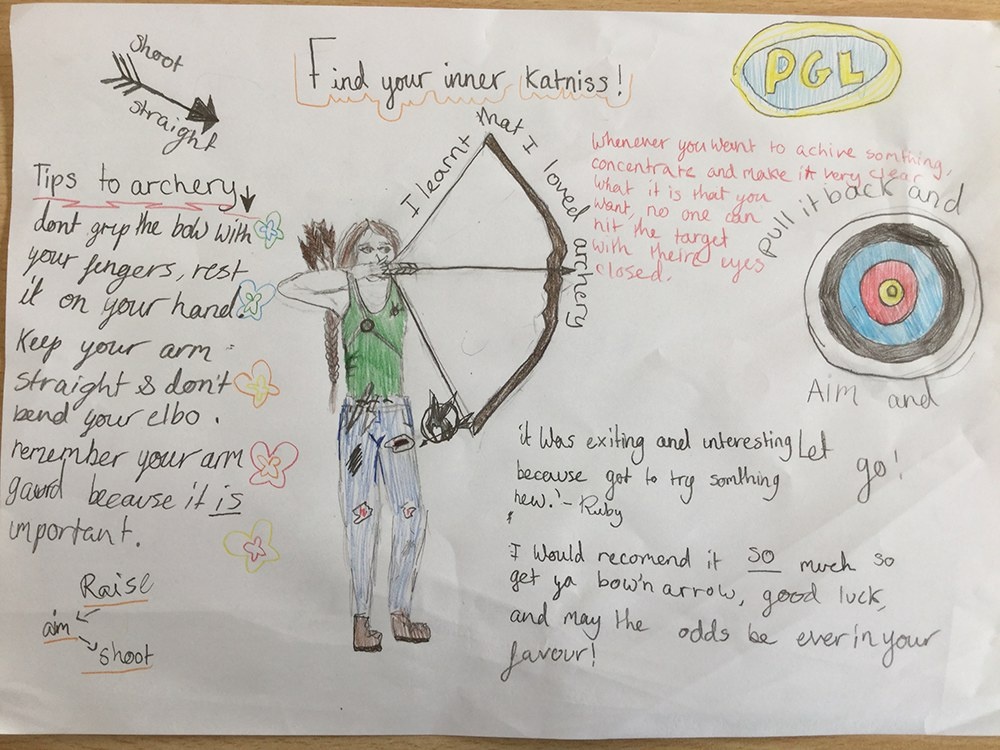 shoot
straight
Find your inner Katniss!
PGL
Tips to archery
dont grip the bow with
your fingers, rest
it on your hand.
Keep your arm
straight & don't
bend your elbo.
remember your arm
gaurd because it is
important.
Raise
aim
shoot
I learnt that I loved archery
Whenever you want to achive somthing,
concentrate and make it very clear
what it is that you
want, no one can
hit the target
with theire eyes
closed.
Pull it back and
Aim and
Let
go!
'it was exiting and interesting
because got to try somthing
new.' - Ruby
I would recomend it so much so
get ya bow'n arrow, good luck,
and may the odds be ever in your
favour!